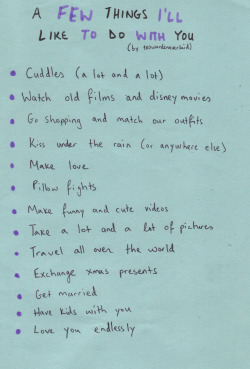 A FEW THINGS I'LL
LIKE TO DO WITH YOU
• Cuddles (a lot and a lot)
• Watch old films and disney movies
• Go shopping and match our outfits
• Kiss under the rain (or anywhere else)
• Make love
• Pillow fights
• Make funny and cute videos
• Take a lot and a lot of pictures
• Travel all over the world
• Exchange xmas presents
• Get married
• Have kids with you
• Love you endlessly